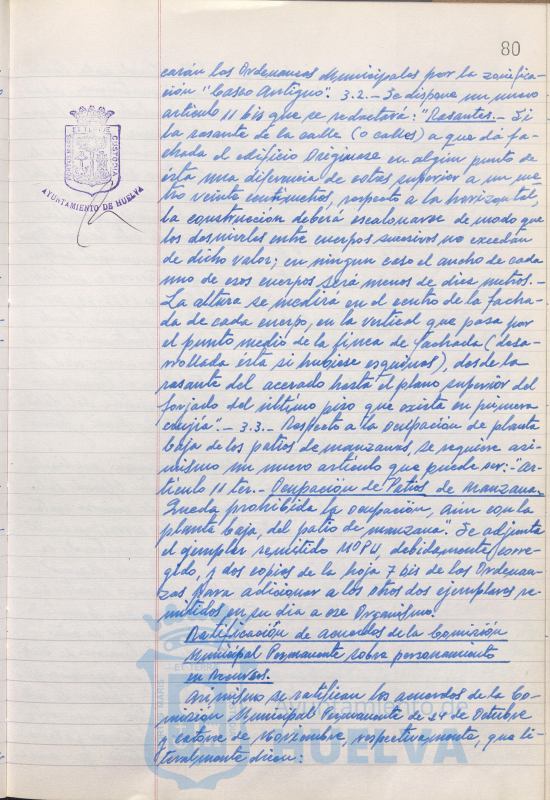 80
carán las Ordenanzas Municipales por la zonifica-
ción "Casco Antiguo". 3.2.- Se dispone un nuevo
artículo 11 bis que se redactará: "Rasantes.- Si
la rasante de la calle (o calles) a que dá fa-
chada el edificio originase en algún punto de
ésta una diferencia de cotas superior a un me-
tro veinte centímetros, respecto a la horizontal,
la construcción deberá escalonarse de modo que
los desniveles entre cuerpos sucesivos no excedan
de dicho valor; en ningún caso el ancho de cada
uno de esos cuerpos será menos de diez metros.-
La altura se medirá en el centro de la facha-
da de cada cuerpo, en la vertical que pasa por
el punto medio de la línea de fachada (desa-
rrollada ésta si hubiese esquinas), desde la
rasante del acerado hasta el plano superior del
forjado del último piso que exista en primera
crujía".- 3.3.- Respecto a la ocupación de planta
baja de los patios de manzanas, se requiere asi-
mismo un nuevo artículo que puede ser:- Ar-
tículo 11 ter.- Ocupación de Patios de Manzana.
Queda prohibida la ocupación, aún con la
planta baja, del patio de manzana". Se adjunta
el ejemplar remitido MOPU, debidamente corre-
gido, y dos copias de la hoja 7 bis de las Ordenan-
zas para adicionar a los otros dos ejemplares re-
mitidos en su día a ese Organismo.
Ratificación de acuerdos de la Comisión
Municipal Permanente sobre personamiento
en Recursos.
Asimismo se ratifican los acuerdos de la Co-
misión Municipal Permanente de 24 de Octubre
y catorce de Noviembre, respectivamente, que li-
teralmente dicen:
CUSTODIA
AYUNTAMIENTO DE HUELVA
Ayuntamiento de
HUELVA